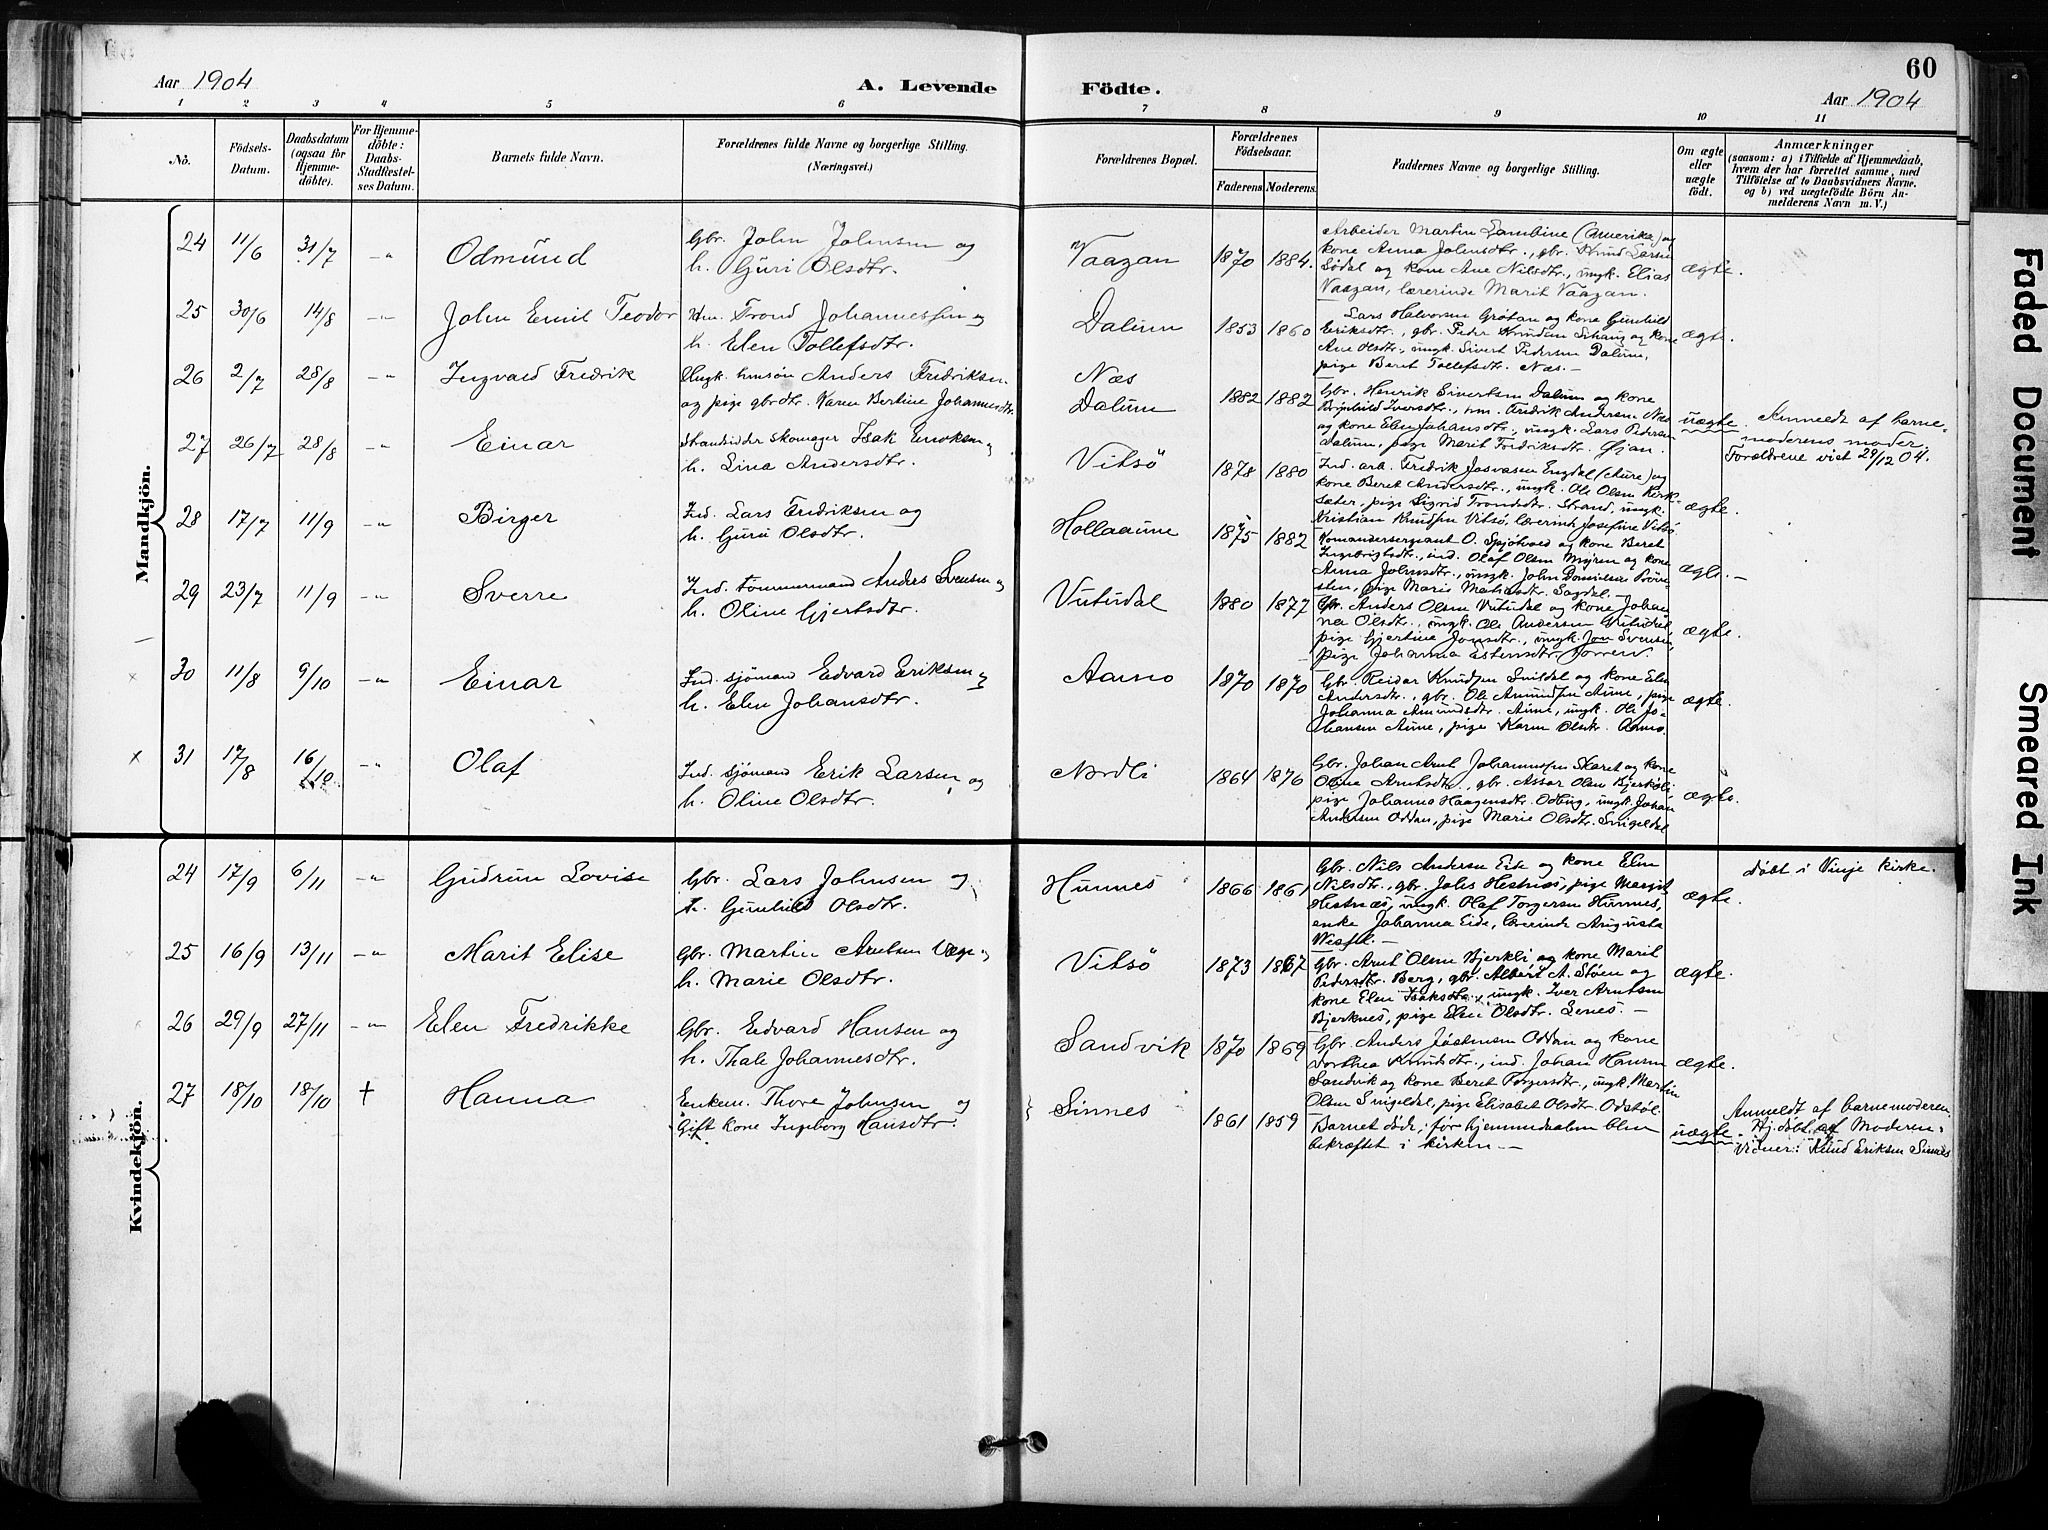 60
Aar 1904
A. Levende
Födte.
Aar 1904
1 2 3 4 5 6 7 8 9 10 11
No.
Födsels-
Datum.
Daabsdatum
(ogsaa for
Hjemme-
döbte).
For Hjemme-
döbte:
Daabs-
Stadfæstel-
ses Datum.
Barnets fulde Navn.
Forældrenes fulde Navne og borgerlige Stilling.
(Næringsvei.)
Forældrenes Bopæl.
Forældrenes
Födselsaar.
Faderens
Moderens.
Faddernes Navne og borgerlige Stilling.
Om ægte
eller
uægte
födt.
Anmærkninger
(saasom: a) i Tilfælde af Hjemmedaab,
hvem der har forrettet samme, med
Tilföielse af to Daabsvidners Navne.
og b) ved uægtefödte Börn An-
melderens Navn m. V.)
Mandkjön.
24 11/6 31/7 -"- Odmund
Gbr. John Johnsen og
h. Guri Olsdtr.
Vaagan 1870 1884.
Arbeider Martin Lambine (Amerika) og
kone Anna Johnsdtr., gbr. Knud Larsen
Södal og kone Ane Nilsdtr., ungk. Elias
Vaagan, lærerinde Marit Vaagan.
ægte.
25 30/6 14/8 -"- John Emil Teodor
Hm. Trond Johannessen og
h. Elen Tollefsdtr.
Dalum 1853 1860
Lars Halvorsen Grötan og kone Gunhild
Eriksdtr., gbr. Peder Knudsen og kone
Ane Olsdtr., ungk. Sivert Pedersen Dalum,
pige Beret Tollefsdtr. Næs.-
ægte.
26 2/7 28/8 -"- Ingvald Fredrik
Ungk. hmsön Anders Fredriksen
og pige gbrdtr. Karen Bertine Johannesdtr.
Næs
Dalum 1882 1882
Gbr. Henrik Sivertsen Dalum og kone
Brynhild Iversdtr., hm. Fredrik Andersen Næs
og kone Elen Johansdtr., ungk. Lars Pedersen
Dalum, pige Marit Fredriksdtr. Öian.
uægte.
Anmeldt af barne-
moderens moder.
Forældrene viet 29/12 04.
27 26/7 28/8 -"- Einar
Strandsidder skomager Isak Enoksen og
h. Lina Andersdtr.
Vitsö 1878 1880
Ind. arb. Fredrik Josvasen Engdal (Aure) og
kone Beret Andersdtr., ungk. Ole Olsen Kirk-
sæter, pige Sigrid Trondsdtr. Strand, ungk.
Kristian Knudsen Vitsö, lærerinde Josefine Vitsö
ægte.
28 17/7 11/9 -"- Birger
Ind. Lars Fredriksen og
h. Guru Olsdtr.
Hollaaune 1875 1882
Komandersergeant O. Spjötvold og kone Beret
Ingebrigtsdtr., ind. Olaf Olsen Myren og kone
Anna Johnsdtr., ungk. John
pige Marie Sagdal.-
ægte.-
29 23/7 11/9 -"- Sverre
Ind. tömmermand Anders Svensen og
h. Oline Gjertsdtr.
Vutudal 1880 1877
Gbr. Anders Olsen Vutudal og kone Johan-
na Olsdtr., ungk. Ole Andersen Vutudal,
pige Gjertine Jonsdtr., ungk. Jon Svensen,
pige Johanna Estensdtr.
ægte.
30 11/8 9/10 -"- Einar
Ind. sjömand Edvard Eriksen og
h. Elen Johansdtr.
Aarno 1870 1870
Gbr. Reidar Knudsen Snildal og kone Elen
Andersdtr., gbr. Ole Amundsen Aune, pige
Johanna Amundsdtr. Aune, ungk. Ole Jo-
hansen Aune, pige Karen Olsdtr. Aarno.
ægte.
31 17/8 16/10 -"- Olaf
Ind. sjömand Erik Larsen og
h. Oline Olsdtr.
Nordli 1864 1876
Gbr. Johan Arnt Johannessen Skaret og kone
Oline Arntsdtr., gbr. Assar Olsen Bjerköli
pige Johanna Haagensdtr. Odbug, ungk. Johan
Andersen Oddan, pige Marie Olsdtr. Singeldal
ægte.
Kvindekjön.
24 17/9 6/11 -"- Gudrun Lovise
Gbr. Lars Johnsen og
h. Gunhild Olsdtr.
Hunnes 1866 1861
Gbr. Nils Andersen Eide og kone Elen
Nilsdtr., gbr. Johs Hestnæs, pige Margit
Hestnæs, ungk. Olaf Torgersen Hunnes,
enke Johanna Eide, lærerinde Augusta
ægte.
Döbt i Vinje kirke.
25 16/9 13/11 -"- Marit Elise
Gbr. Martin Arntsen og
h. Marie Olsdtr.
Vitsö 1873 1867
Gbr. Arnt Olsen Bjerkli og kone Marit
Pedersdtr. Berg, gbr. Albert A. Stöen og
kone Elen Isaksdtr., ungk. Iver Arntsen
Bjerknes, pige Elen Olsdtr. Lenes.-
ægte.
26 29/9 27/11 -"- Elen Fredrikke
Gbr. Edvard Hansen og
h. Thale Johannesdtr.
Sandvik 1870 1869
Gbr. Anders Oddan og kone
Dorthea Knudsdtr., ind. Johan Hansen
Sandvik og kone Beret Torgersdtr., ungk. Martin
Olsen Singeldal, pige Elisabet Olsdtr. Odstöl.
ægte.
27 18/10 18/10 † Hanna
Enkem. Thore Johnsen og
Gift kone Ingeborg Hansdtr.
Sinnes 1861 1859
Barnet döde, för hjemmedaaben blev
bekræftet i kirken.-
uægte.
Anmeldt af barnemoderen.
Hj. döbt af Moderen-
Vidner: Knud Eriksen Sinnes
Faded Document
Smeared Ink